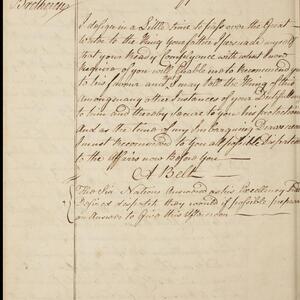 Brethren
I design in a Little time to pass over the Great
Water to the King your father I perswade myself
that your Ready Complyance with what I now
Require of you will Enable me to Recommend you
to his favour and I may tell the King of this
among many other Instances of your
to him and thereby Secure to you his protection
And as the time of my Embarquing Draws near
I must Recommend to You all possible Dispatch
to the Affairs now Before You
A Belt
The Six Nations Answered as his Excellency had
Desired dispatch they would if possible prepare
an Answer to Give this Afternoon